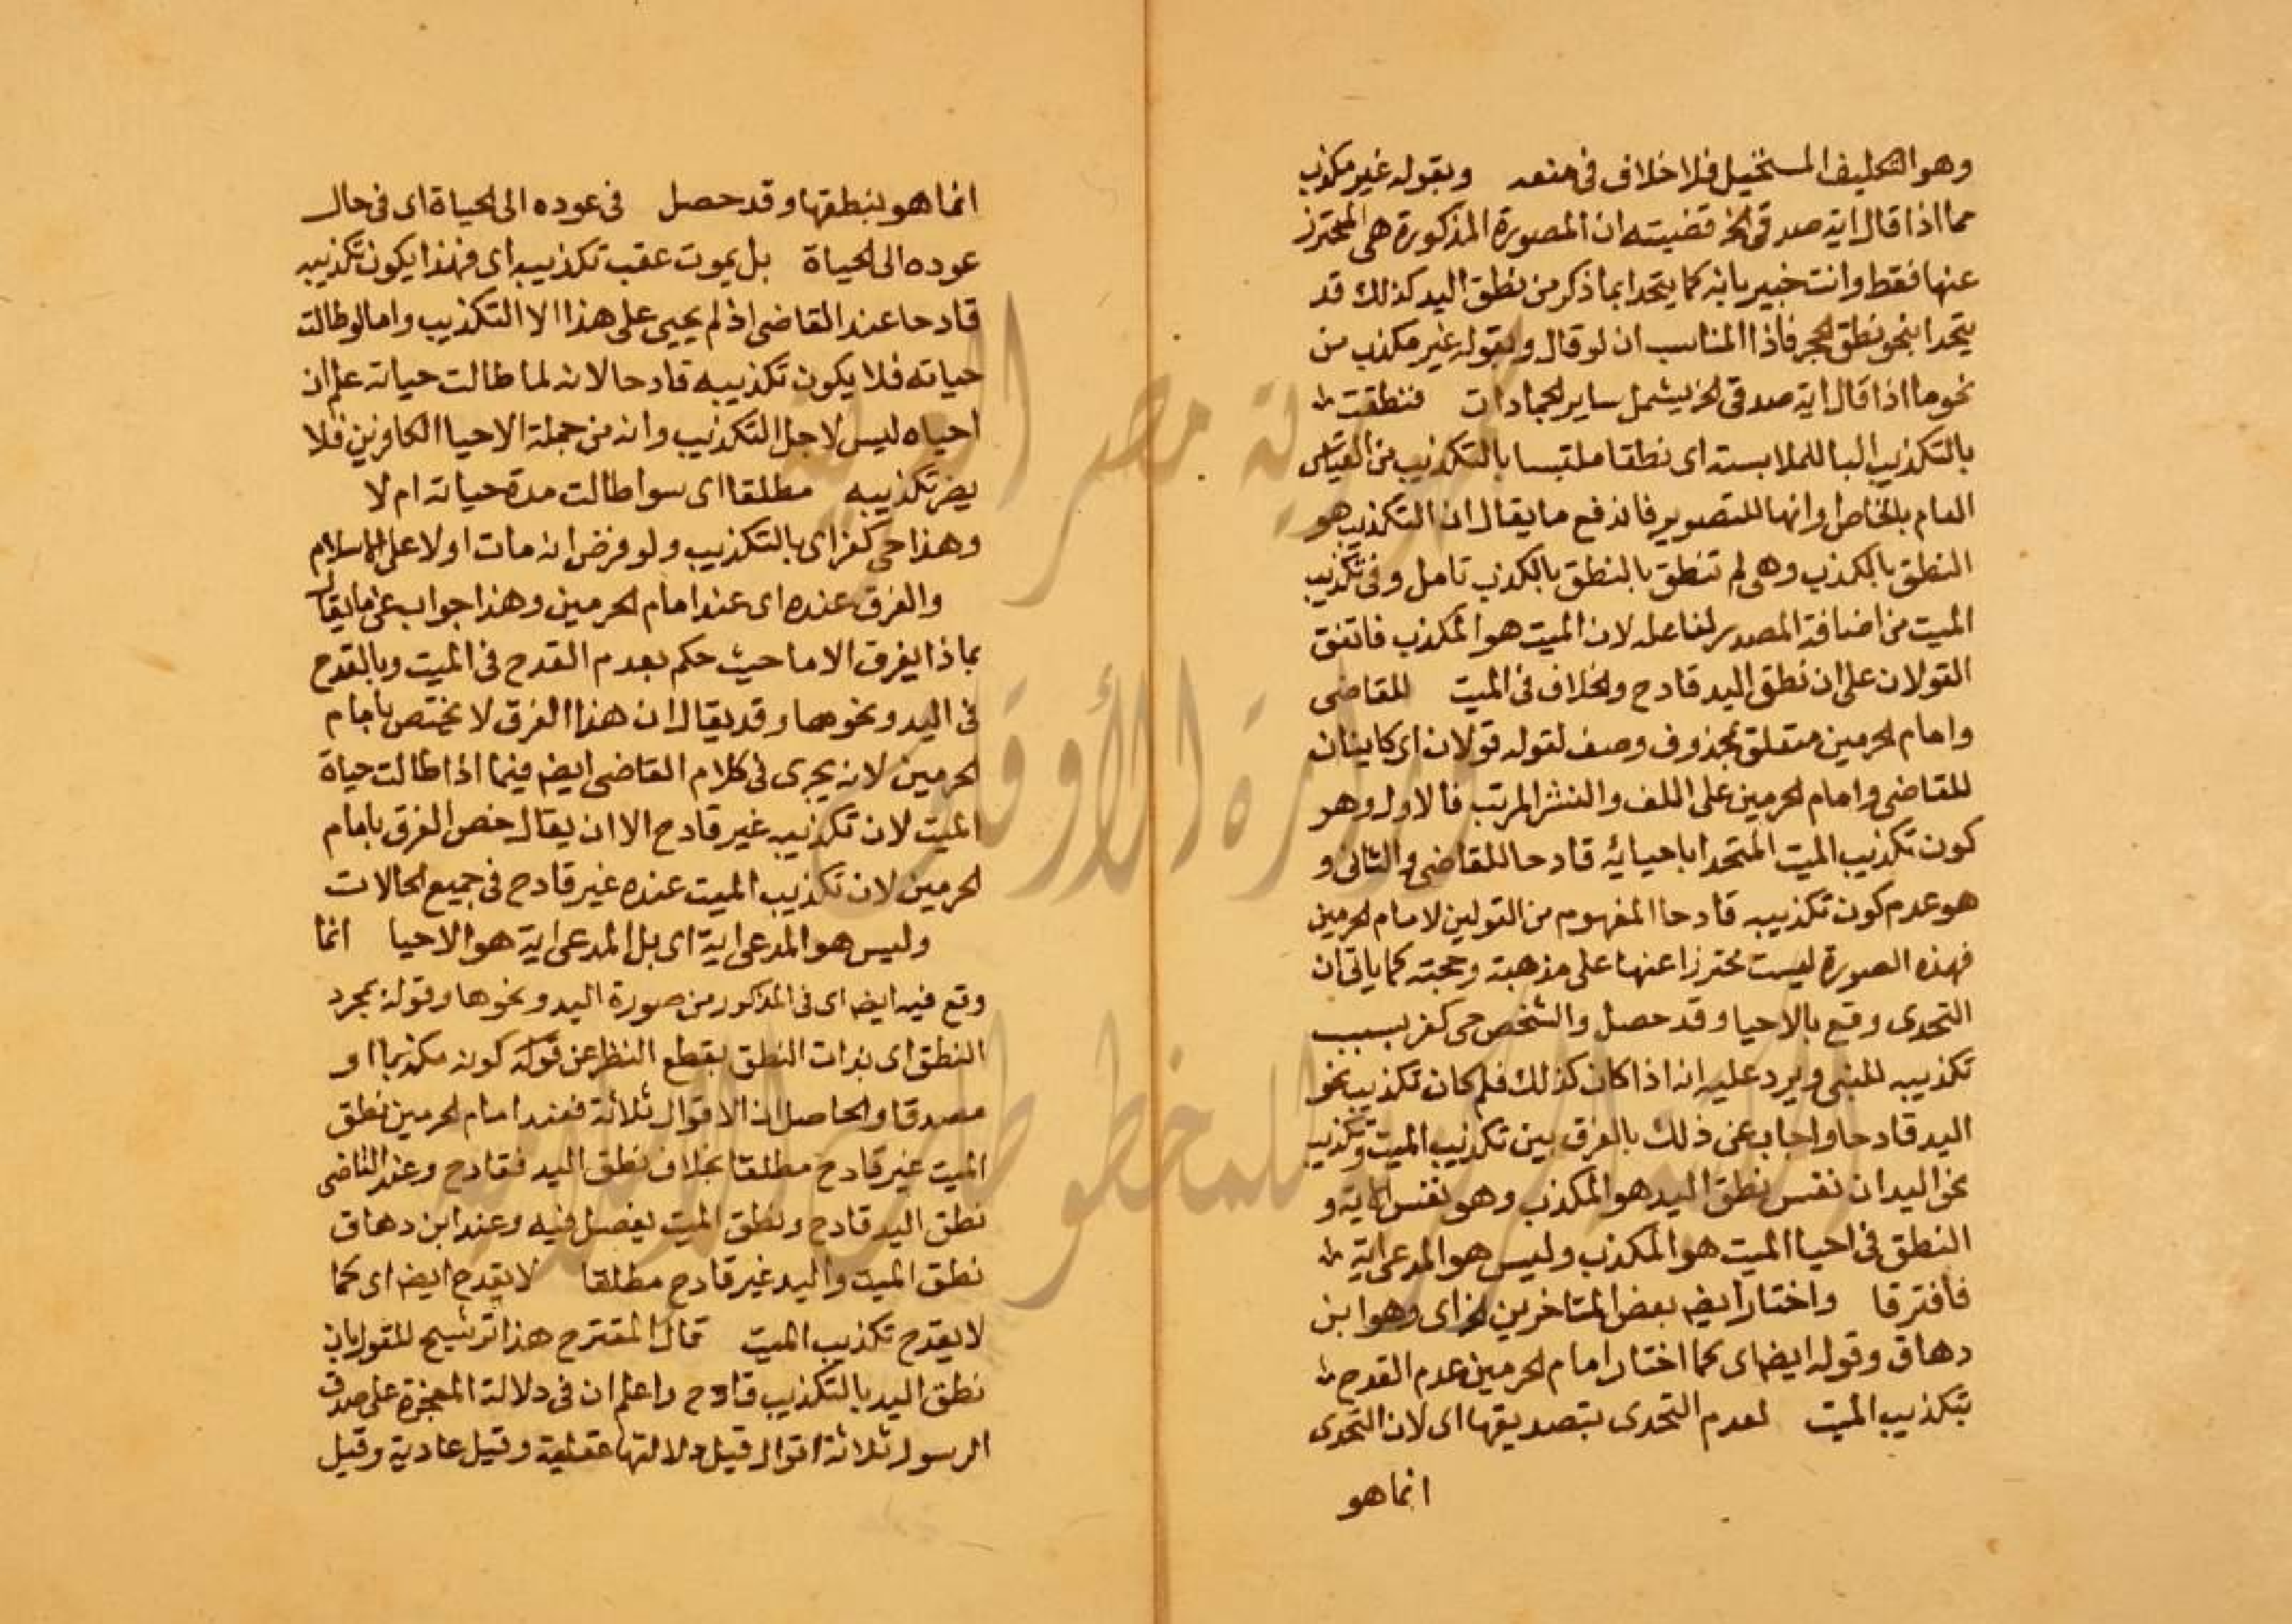 وهو التكليف المستحيل فلا خلاف في منعه وبقوله غير مكذب
مما اذا قال اية صدقي الخ قضيته ان الصورة المذكورة هي المحترز
عنها فقط وانت خبير بانه كما يتحدا بما ذكر من نطق اليد كذلك قد
يتحدا بنحو نطق الحجر فاذا المناسب ان لو قال وبقوله غير مكذب من
نحو ما اذا قال اية صدقي الخ ليشمل ساير الجمادات فنطقت
بالتكذيب البا للملابسته اى نطقا ملتبسا بالتكذيب من
العام بالخاص او انها للتصوير فاندفع ما يقال ان التكذيب هو
النطق بالكذب وهى لم تنطق بالنطق بالكذب تامل وفى تكذيب
الميت من اضافة المصدر لفاعله لان الميت هو المكذب فاتفق
القولان على ان نطق اليد قادح والخلاف فى الميت للقاضى
وامام الحرمين متعلق بمحذوف وصف لقوله قولان اى كاينان
للقاضى وامام الحرمين على اللف والنشر المرتب فالاول وهو
كون تكذيب الميت المتحدا باحيائه قادحا للقاضى والثانى و
هو عدم كون تكذيبه قادحا المفهوم من القولين لامام الحرمين
فهذه الصورة ليست محترزا عنها على مذهبته وحجته كما ياتى ان
التحدى وقع بالاحيا وقد حصل والشخص حى كفر بسبب
تكذيبه للنبى ويرد عليه انه اذا كان كذلك فلم كان تكذيب نحو
اليد قادحا واجاب عن ذلك بالفرق بين تكذيب الميت وتكذيب
نحو اليد ان نفس نطق اليد هو المكذب وهو نفس الاية و
النطق فى احيا الميت هو المكذب وليس هو المدعى اية
فافترقا واختار ايضه بعض المتاخرين الخ اى وهو ابن
دهاق وقوله ايضا اى كما اختار امام الحرمين عدم القدح
بتكذيب الميت لعدم التحدى بتصديقها اى لان التحدى
انما هو
انما هو بنطقها وقد حصل فى عوده الى الحياة اى فى حال
عوده الى الحياة بل يموت عقب تكذيبه اى فهذا يكون تكذيبه
قادحا عند القاضى اذ لم يحيى على هذا الا التكذيب واما لو طالت
حياته فلا يكون تكذيبه قادحا لانه لما طالت حياته علم ان
احياه ليس لاجل التكذيب وانه من جملة الاحيا الكافرين فلا
يضر تكذيبه مطلقا اى سوا طالت مدة حياته ام لا
وهذا حى كفر اى بالتكذيب ولو فرض انه مات اولا على الاسلام
والفرق عنده اى عند امام الحرمين وهذا جواب عن ما يقال
بماذا يفرق الاما حيث حكم بعدم القدح فى الميت وبالقدح
فى اليد ونحوهما وقد يقال ان هذا الفرق لا يختص بامام
الحرمين لانه يجرى فى كلام القاضى ايضه فيما اذا طالت حياة
الميت لان تكذيبه غير قادح الا ان يقال خص الفرق بامام
الحرمين لان تكذيب الميت عنده غير قادح فى جميع الحالات
وليس هو المدعى اية اى بل المدعى اية هو الاحيا انما
وقع فيه ايضه اى فى المذكور من صورة اليد ونحوها وقوله بمجرد
النطق اى بذات النطق بقطع النظر عن قوله كونه مكذبا او
مصدقا والحاصل ان الاقوال ثلاثة فعند امام الحرمين نطق
الميت غير قادح مطلقا بخلاف نطق اليد فقادح وعند القاضى
نطق اليد قادح ونطق الميت يفصل فيه وعند ابن دهاق
نطق الميت واليد غير قادح مطلقا لا يقدح ايضه اى كما
لا يقدح تكذيب الميت قال المقترح هذا ترشيح للقول بان
نطق اليد بالتكذيب قادح واعلم ان فى دلالة المعجزة على صدق
الرسول ثلاثة اقوال قيل دلالتها عقلية وقيل عادية وقيل
جمهورية مصر العربية
وزارة الأوقاف